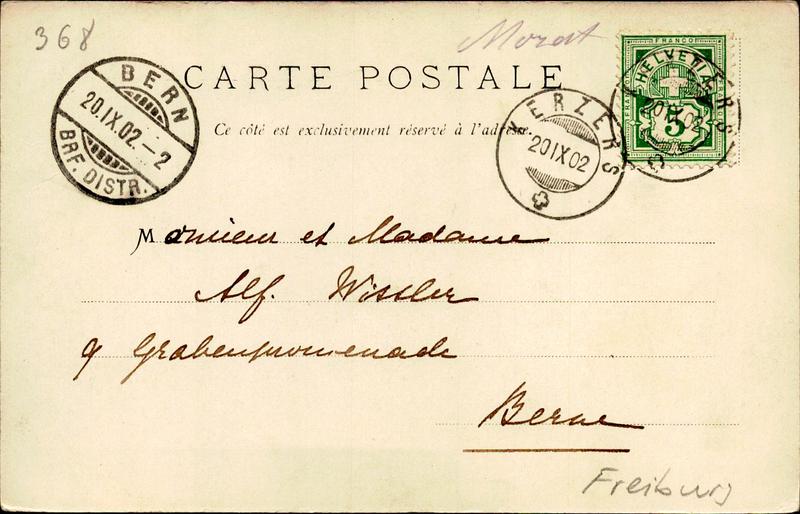 368
Morat
FRANCO
HELVETIA
5
KERZERS
20 IX 02
BERN
20.IX.02.-2
BRF. DISTR.
CARTE POSTALE
Ce côté est exclusivement réservé à l'adresse.
KERZERS
20 IX 02
Monsieur et Madame
Alf. Wissler
9 Grabenpromenade
Berne
Freiburg